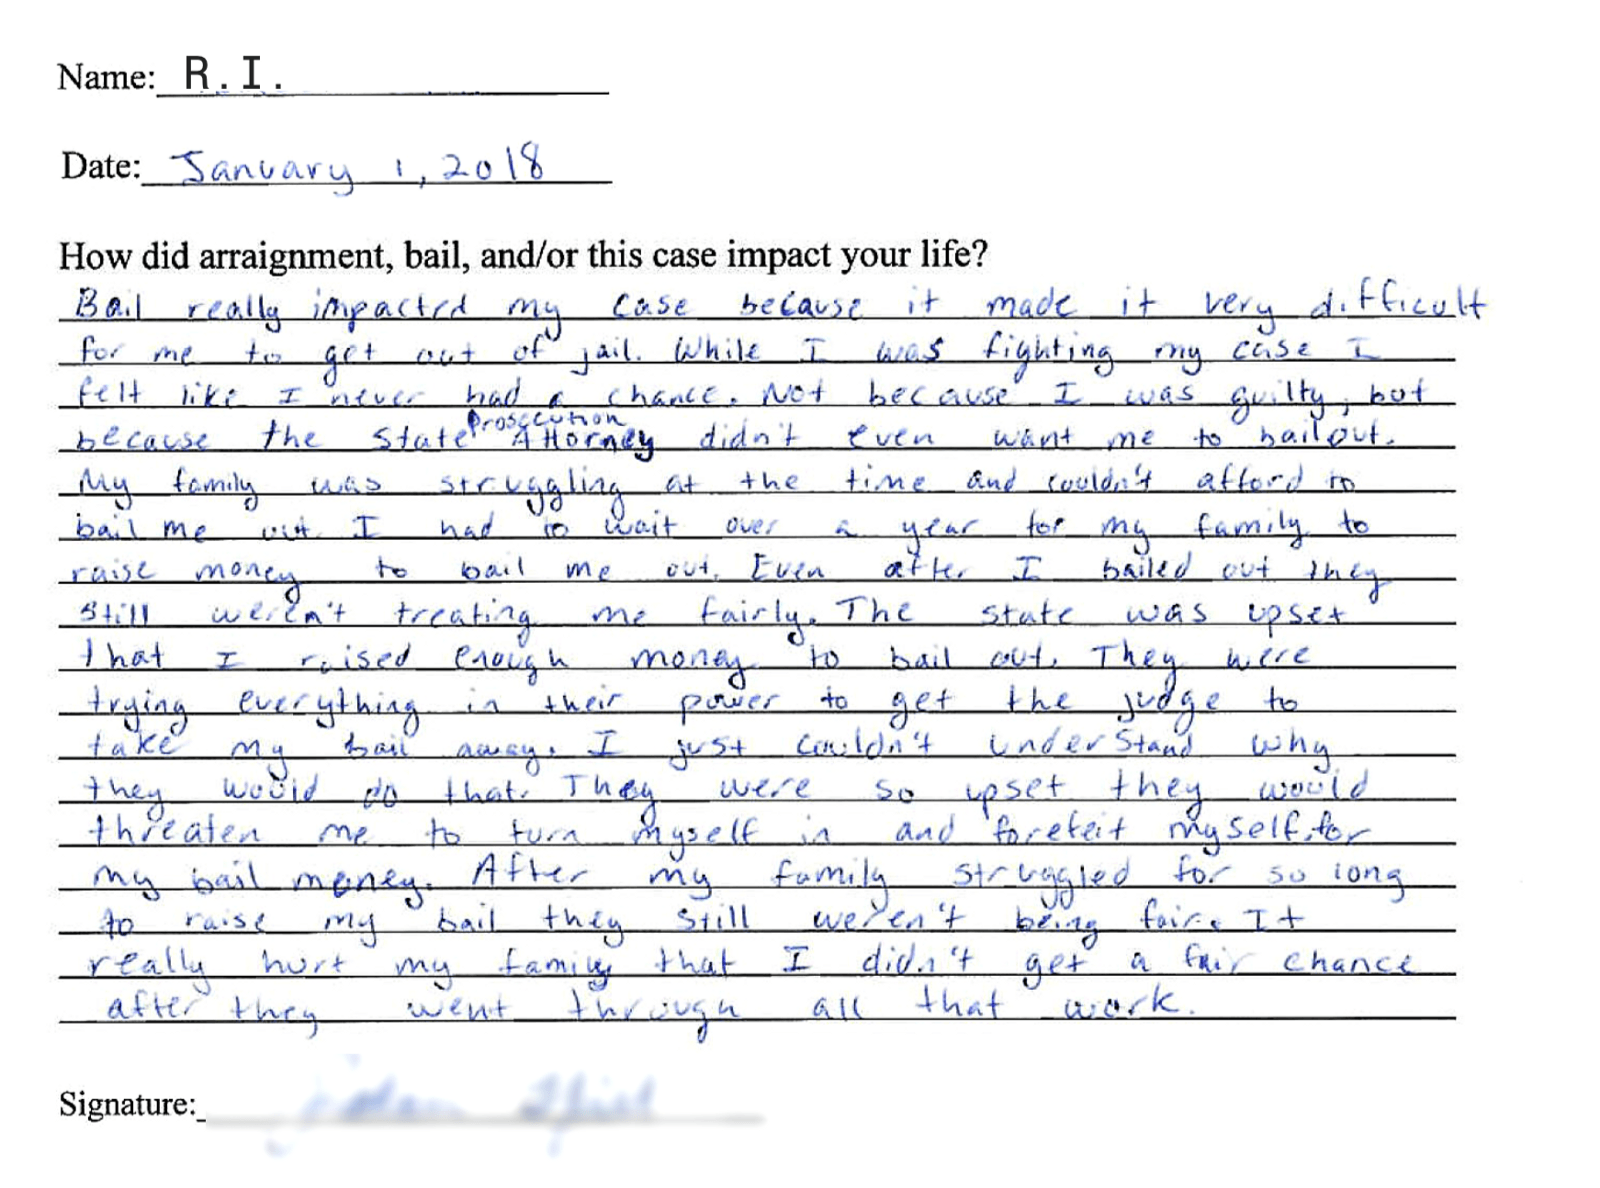 Name: R.I.
Date: January 1, 2018
How did arraignment, bail, and/or this case impact your life?
Bail really impacted my case because it made it very difficult
for me to get out of jail. While I was fighting my case I
felt like I never had a chance. Not because I was guilty, but
because the State Prosecution Attorney didn't even want me to bail out.
My family was struggling at the time and couldn't afford to
bail me out. I had to wait over a year for my family to
raise money to bail me out. Even after I bailed out they
still weren't treating me fairly. The state was upset
that I raised enough money to bail out. They were
trying everything in their power to get the judge to
take my bail away. I just couldn't understand why
they would do that. They were so upset they would
threaten me to turn myself in and foreteit myself for
my bail money. After my family struggled for so long
to raise my bail they still weren't being fair. It
really hurt my family that I didn't get a fair chance
after they went through all that work.
Signature: